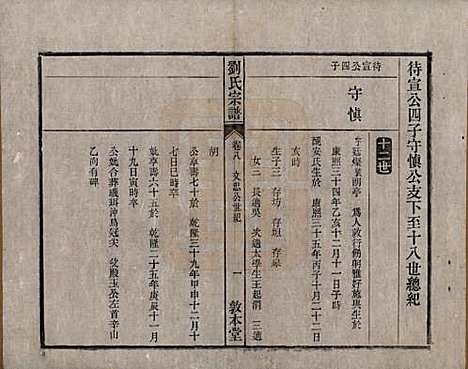 待宣公四子守慎公支下至十八世總紀
十二世
待宣公四子
守慎
字廷燦號朗亭 為人敦行勵明雅好施與生於
康熙三十四年乙亥十二月十一日子時
配安氏生於 康熙三十五年丙子十月二十二日
亥時
生子三 存坊 存坦 存杲
女二 長適吳 次適太學生王起渭 三適
胡
公享壽七十於 乾隆三十九年甲申十二月十
七日巳時卒
妣享壽六十五於 乾隆二十五年庚辰十一月
十九日寅時卒
公妣合葬 公左首辛山
乙向有碑
劉氏宗譜
卷八 文起公世紀
一
敦本堂